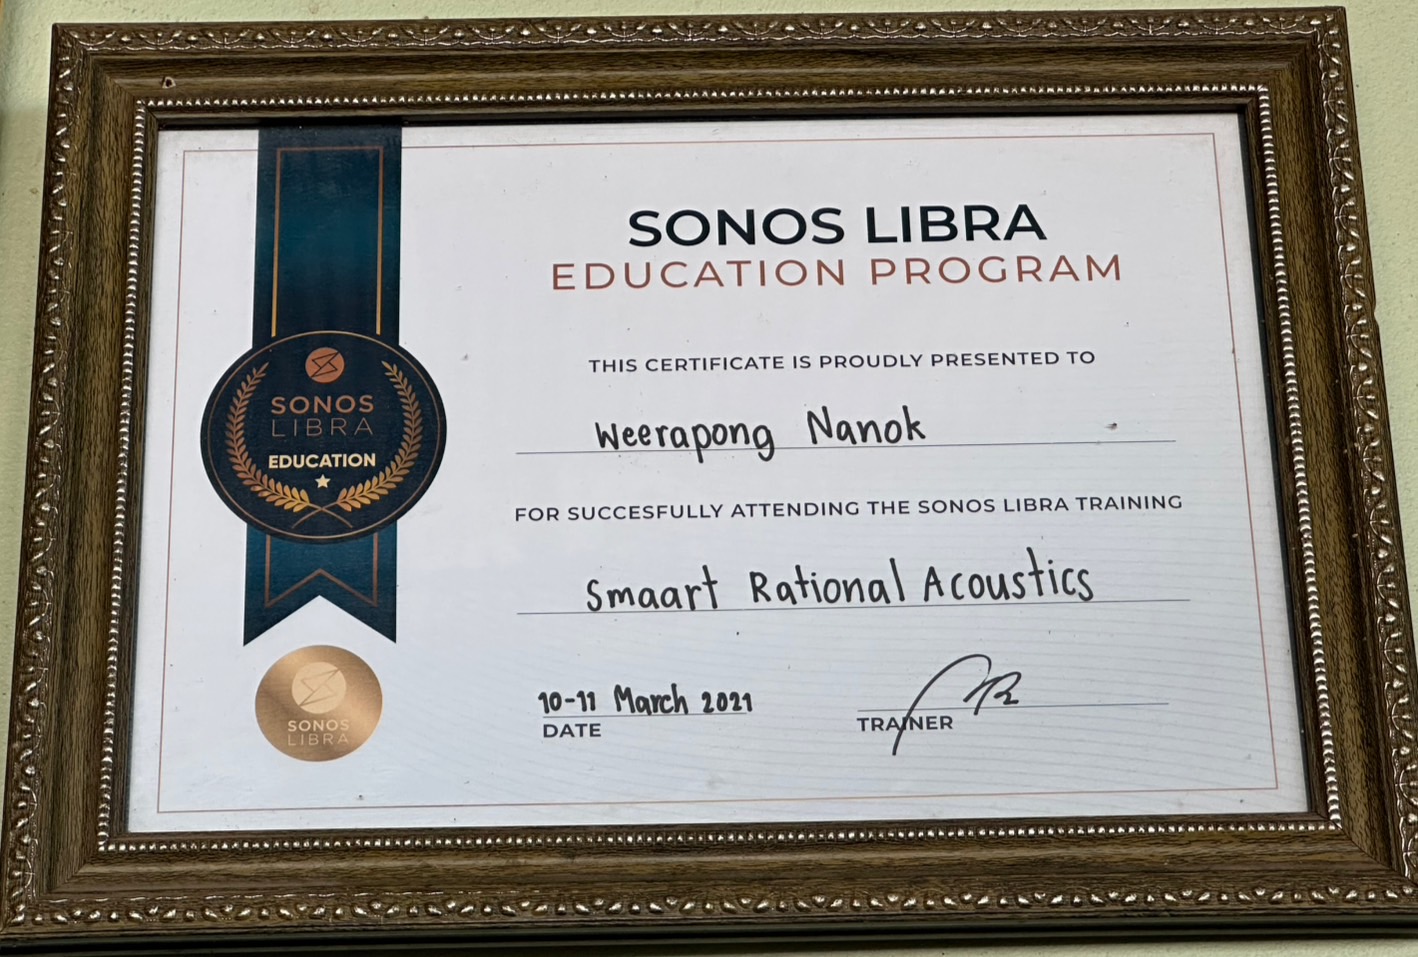 SONOS LIBRA
EDUCATION PROGRAM
THIS CERTIFICATE IS PROUDLY PRESENTED TO
Weerapong Nanok
FOR SUCCESFULLY ATTENDING THE SONOS LIBRA TRAINING
Smaart Rational Acoustics
10-11 March 2021
DATE
TRAINER
SONOS
LIBRA
EDUCATION
SONOS
LIBRA